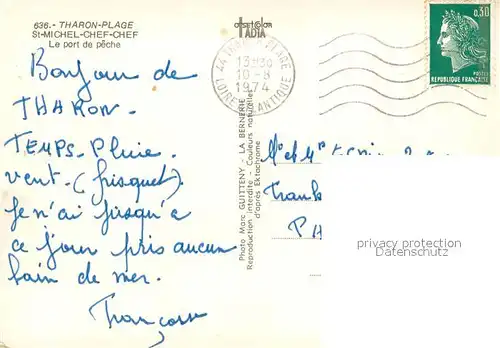 636.- THARON-PLAGE
St-MICHEL-CHEF-CHEF
Le port de pêche
44 THARON-PLAGE
13H30
10-8
1974
LOIRE ATLANTIQUE
0,30
POSTES
REPUBLIQUE FRANÇAISE
Bonjour de
THARON.
TEMPS. Pluie.
vent. (frisquet).
Je n'ai jusqu'à
ce jour pris aucun
bain de mer.
Françoise
Photo Marc GUITTENY - LA BERNERIE
Reproduction interdite - Couleurs naturelles
d'après Ektachrome
privacy protection
Datenschutz